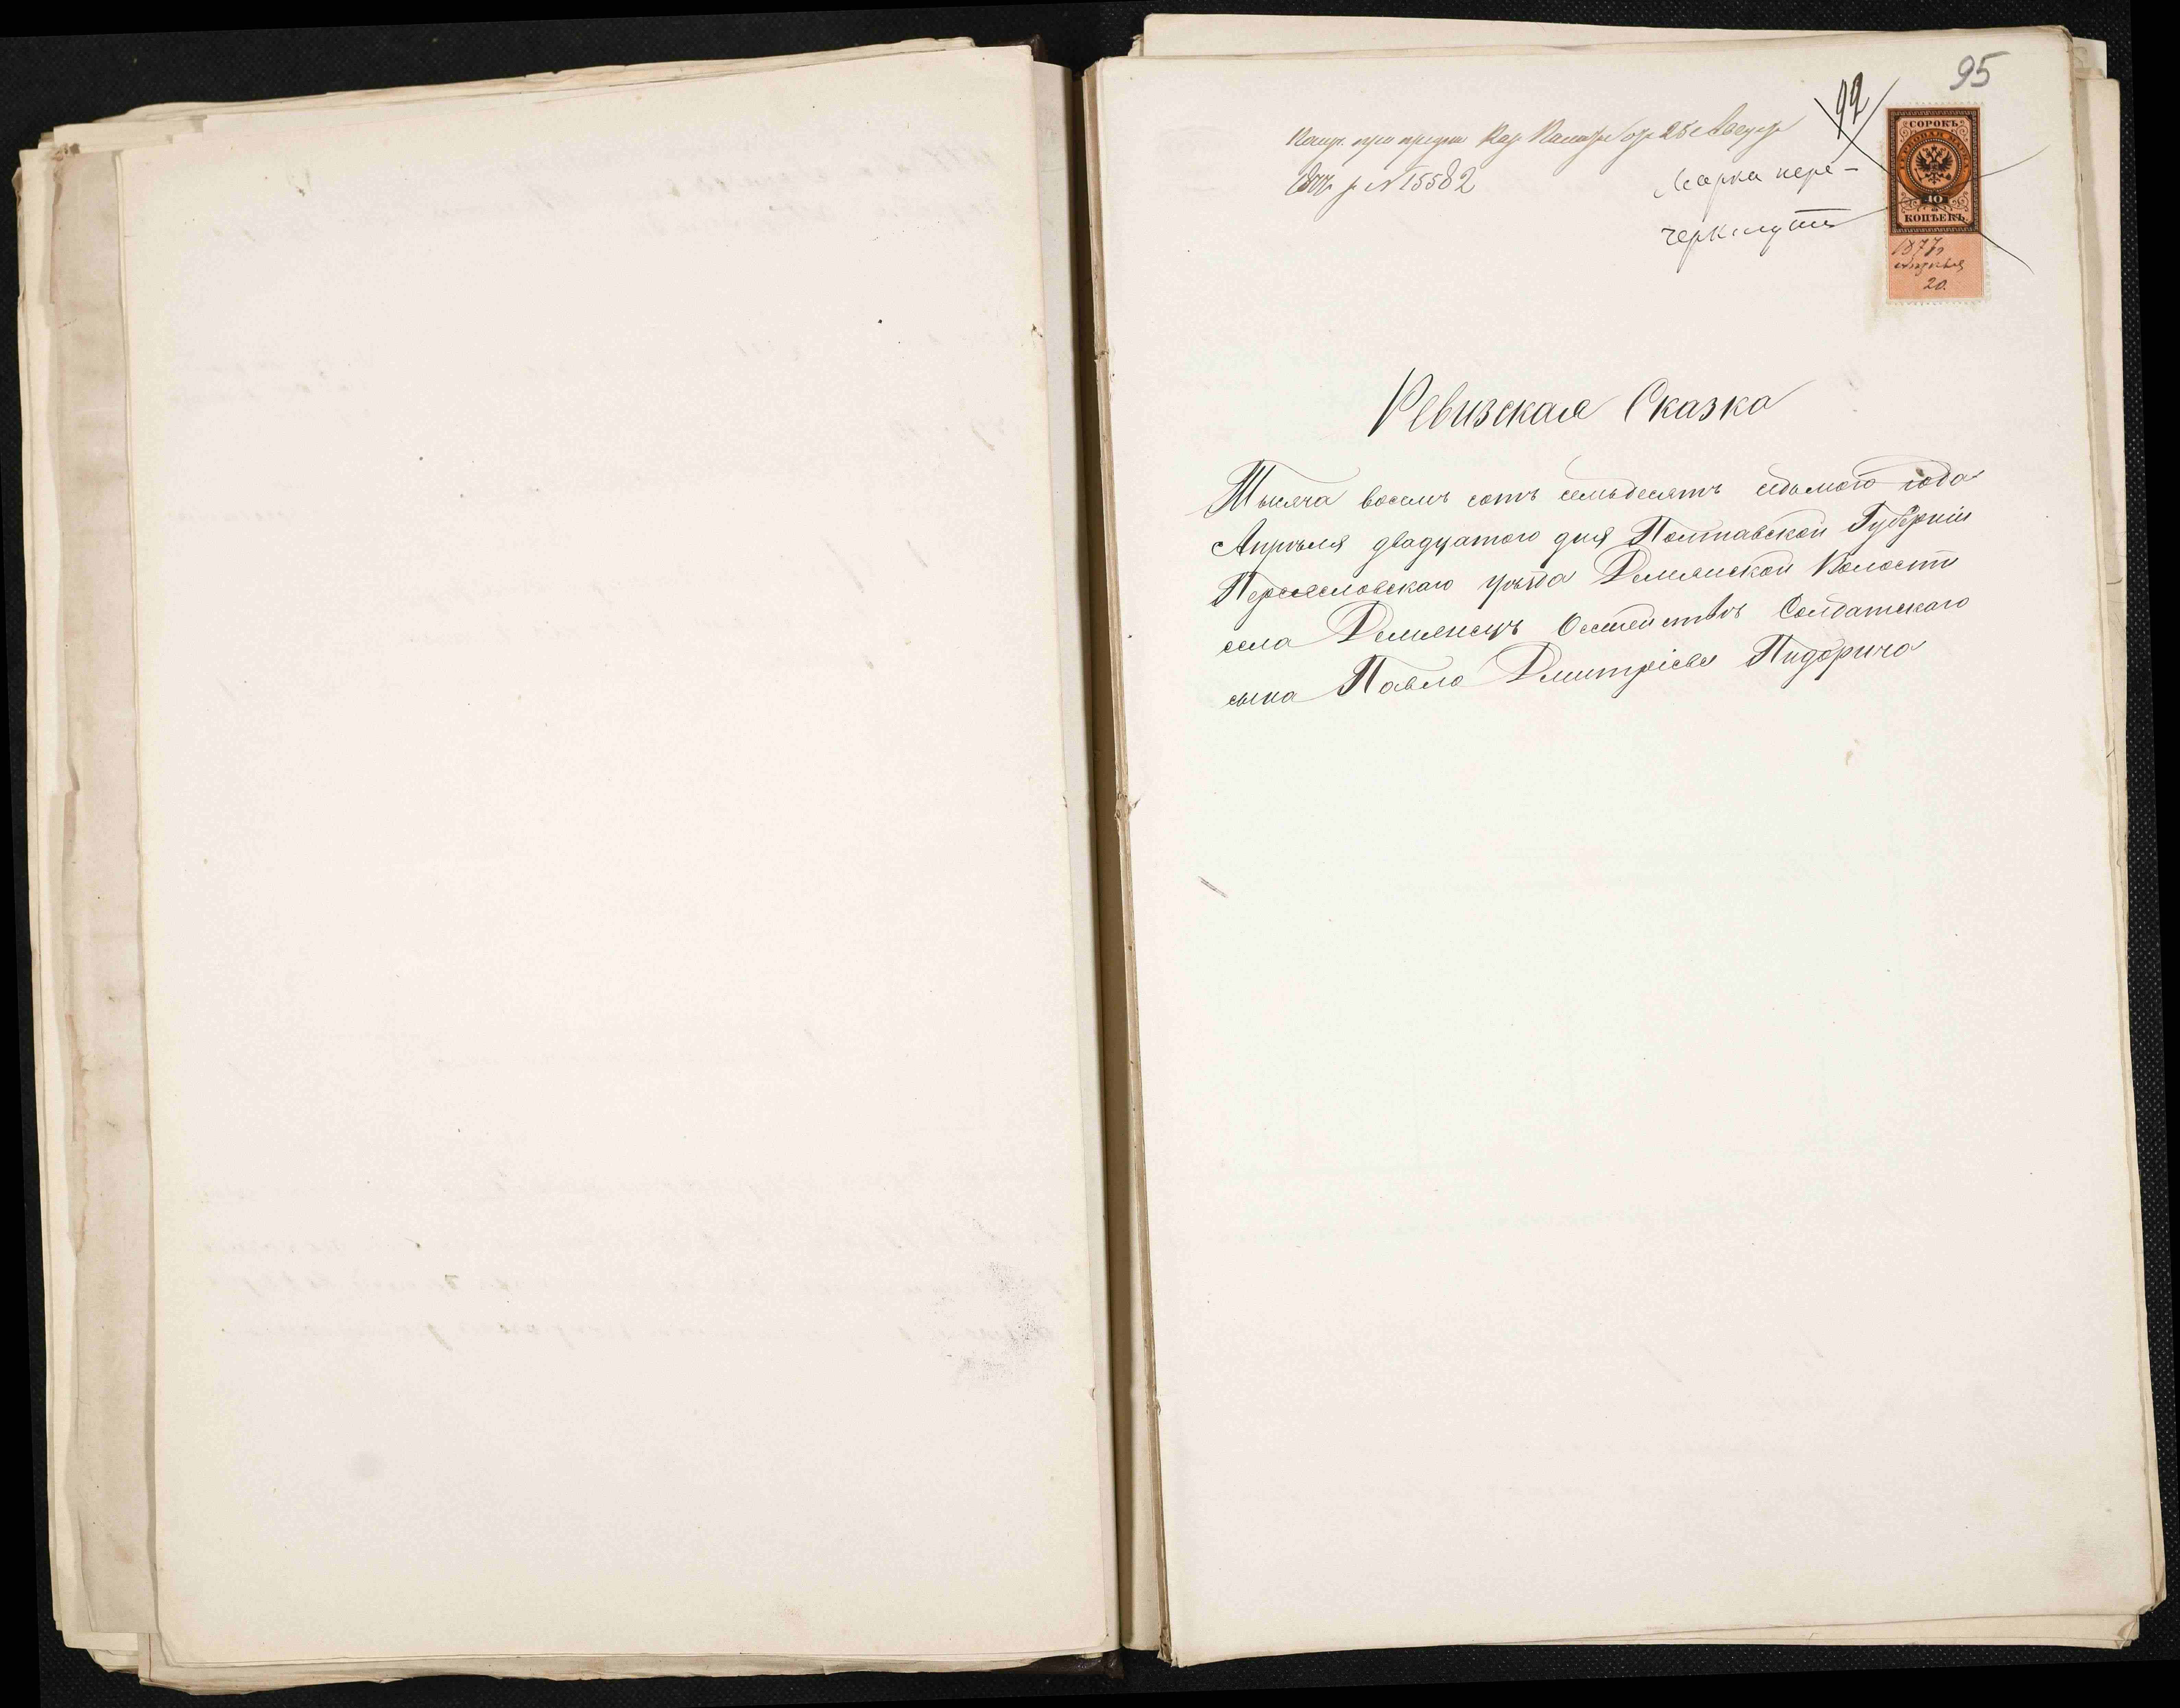 95
92
Получ. при предпи. Каз. Палаты отъ 25 Августа
1877 г. № 15582
Марка пере-
черкнута
СОРОКЪ
40
КОПѢЕКЪ
1877 г.
Апрѣля
20.
Ревизская Сказка
Тысяча восемь сотъ семьдесятъ седьмого года
Апрѣля двадцатого дня Полтавской Губерніи
Переясловскаго уѣзда Демянской Волости
села Демянецъ Солдатскаго
сына Павла Дмитріева Пидорича